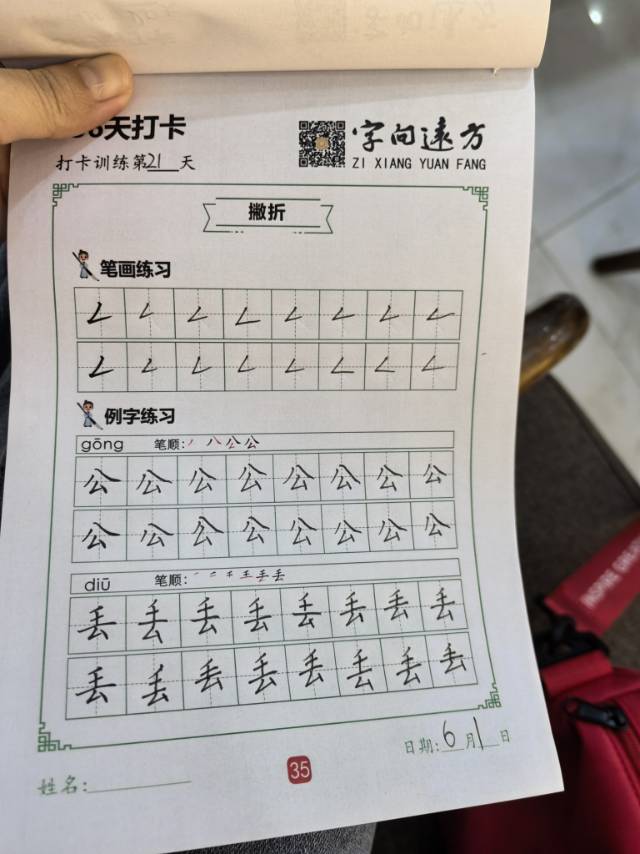 天打卡
字向远方
打卡训练第21天
ZI XIANG YUAN FANG
撇折
笔画练习
例字练习
gōng 笔顺: 丿 八 公 公
公 公 公 公 公 公 公 公
公 公 公 公 公 公 公 公
diū 笔顺:
丢 丢 丢 丢 丢 丢 丢 丢
丢 丢 丢 丢 丢 丢 丢 丢
日期: 6月1日
35
姓名: